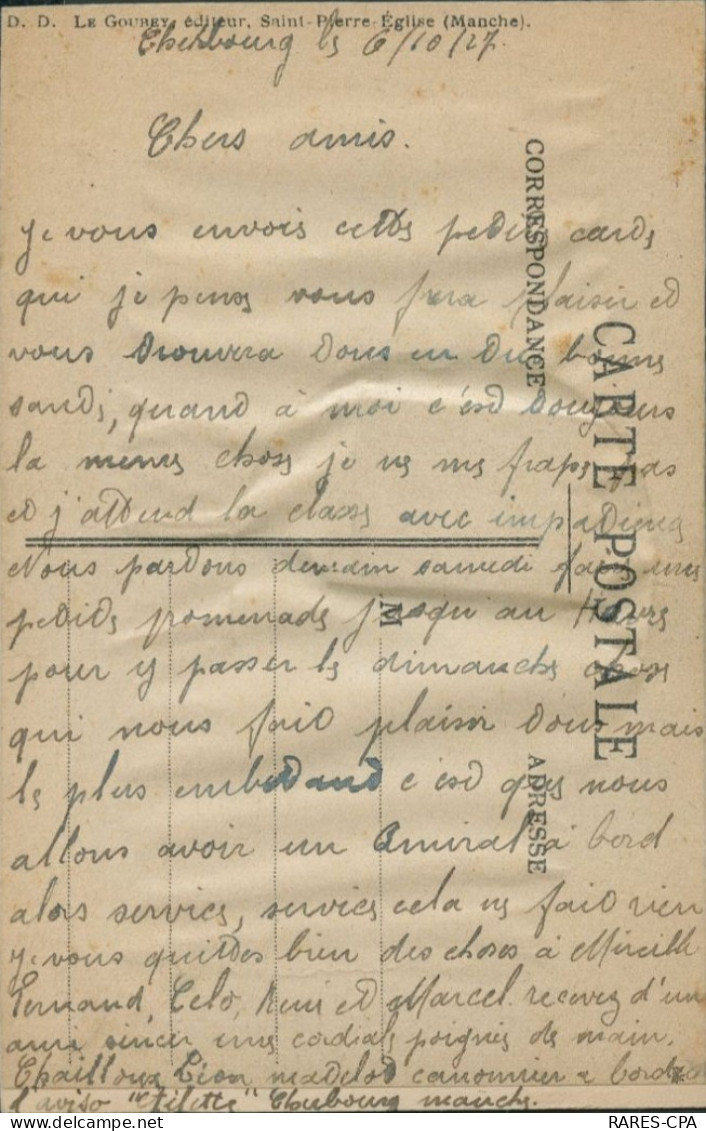 D. D. LE GOUBEY, éditeur, Saint-Pierre-Église (Manche).
Cherbourg le 6/10/27.
Chers amis.
je vous envois cette petite carte
qui je pense vous fera plaisir et
vous trouvera tous en du bonne
santé, quand à moi c'est toujours
la meme chose je ne me frape pas
et j'attend la classe avec impatience
Nous partons demain samedi faire une
petite promenade jusqu au Havre
pour y passer le dimanche chose
qui nous fait plaisir tous mais
le plus embetand c'est que nous
allons avoir un Amiral à bord
alors service, service cela ne fait rien
je vous quittes bien des choses à Mireille
Fernand, Celo, René et Marcel. recevez d'un
ami sincer une cordiale poignée de main.
Chailloux Léon matelot canonnier a bord de
l'aviso "Ailette" Cherbourg manche.
CORRESPONDANCE
CARTE POSTALE
M
ADRESSE
RARES-CPA